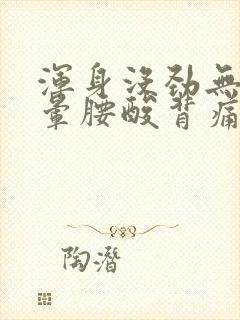 渾身沒勁無
暈腰酸背痛
陶潛